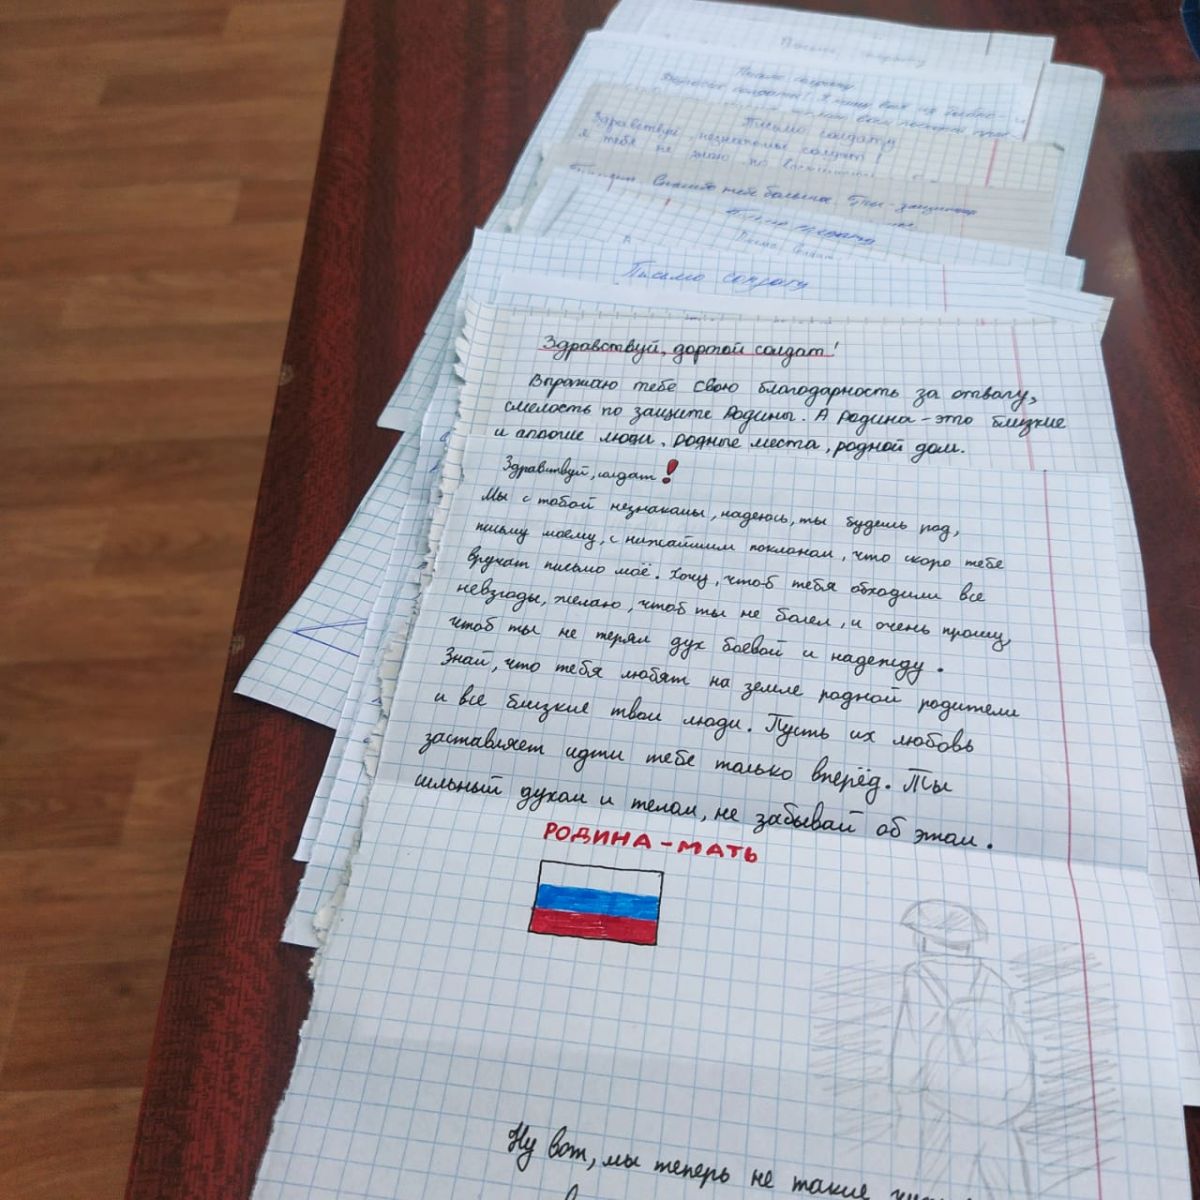 Письмо солдату
Письмо солдату
Письмо солдату
Здравствуй, незнакомый солдат!
я тебя не знаю, но
Спасибо тебе большое. Ты - защитник
Письмо солдату
Письмо солдату
Здравствуй, дорогой солдат!
Выражаю тебе свою благодарность за отвагу,
смелость по защите Родины. А родина - это близкие
и люди, родные места, родной дом.
Здравствуй, солдат!
Мы с тобой незнакомы, надеюсь, ты будешь рад,
письму моему, с нижайшим поклоном, что скоро тебе
вручат письмо моё. Хочу, чтоб тебя обходили все
невзгоды, желаю, чтоб ты не болел, и очень прошу,
чтоб ты не терял дух боевой и надежду.
Знай, что тебя любят на земле родной родители
и все близкие твои люди. Пусть их любовь
заставляет идти тебе только вперёд. Ты
сильный духом и телом, не забывай об этом.
РОДИНА - МАТЬ
Ну вот, мы теперь не такие